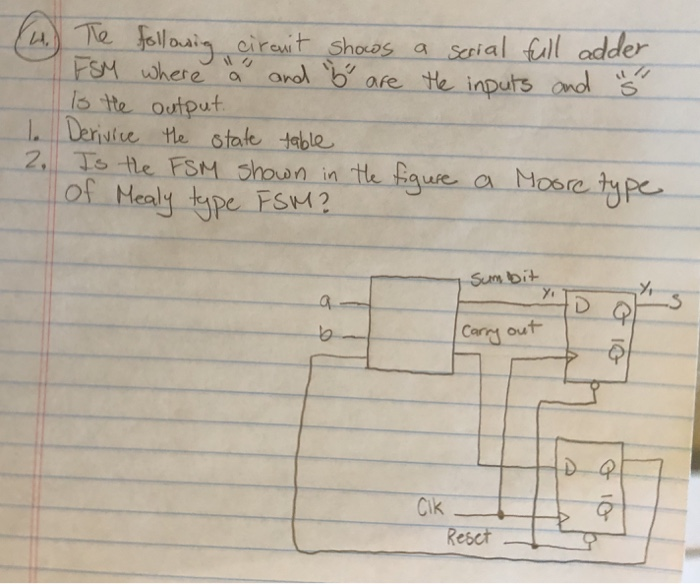 4. The followig circuit shows a serial full adder
FSM where "a" and "b" are the inputs and "s"
is the output.
1. Derivice the state table
2. Is the FSM shown in the figure a Moore type
Of Mealy type FSM?
Sum bit
a
Y₁
D
Q
y₁
S
b
Carry out
Q̅
D
Q
Clk
Q̅
Reset